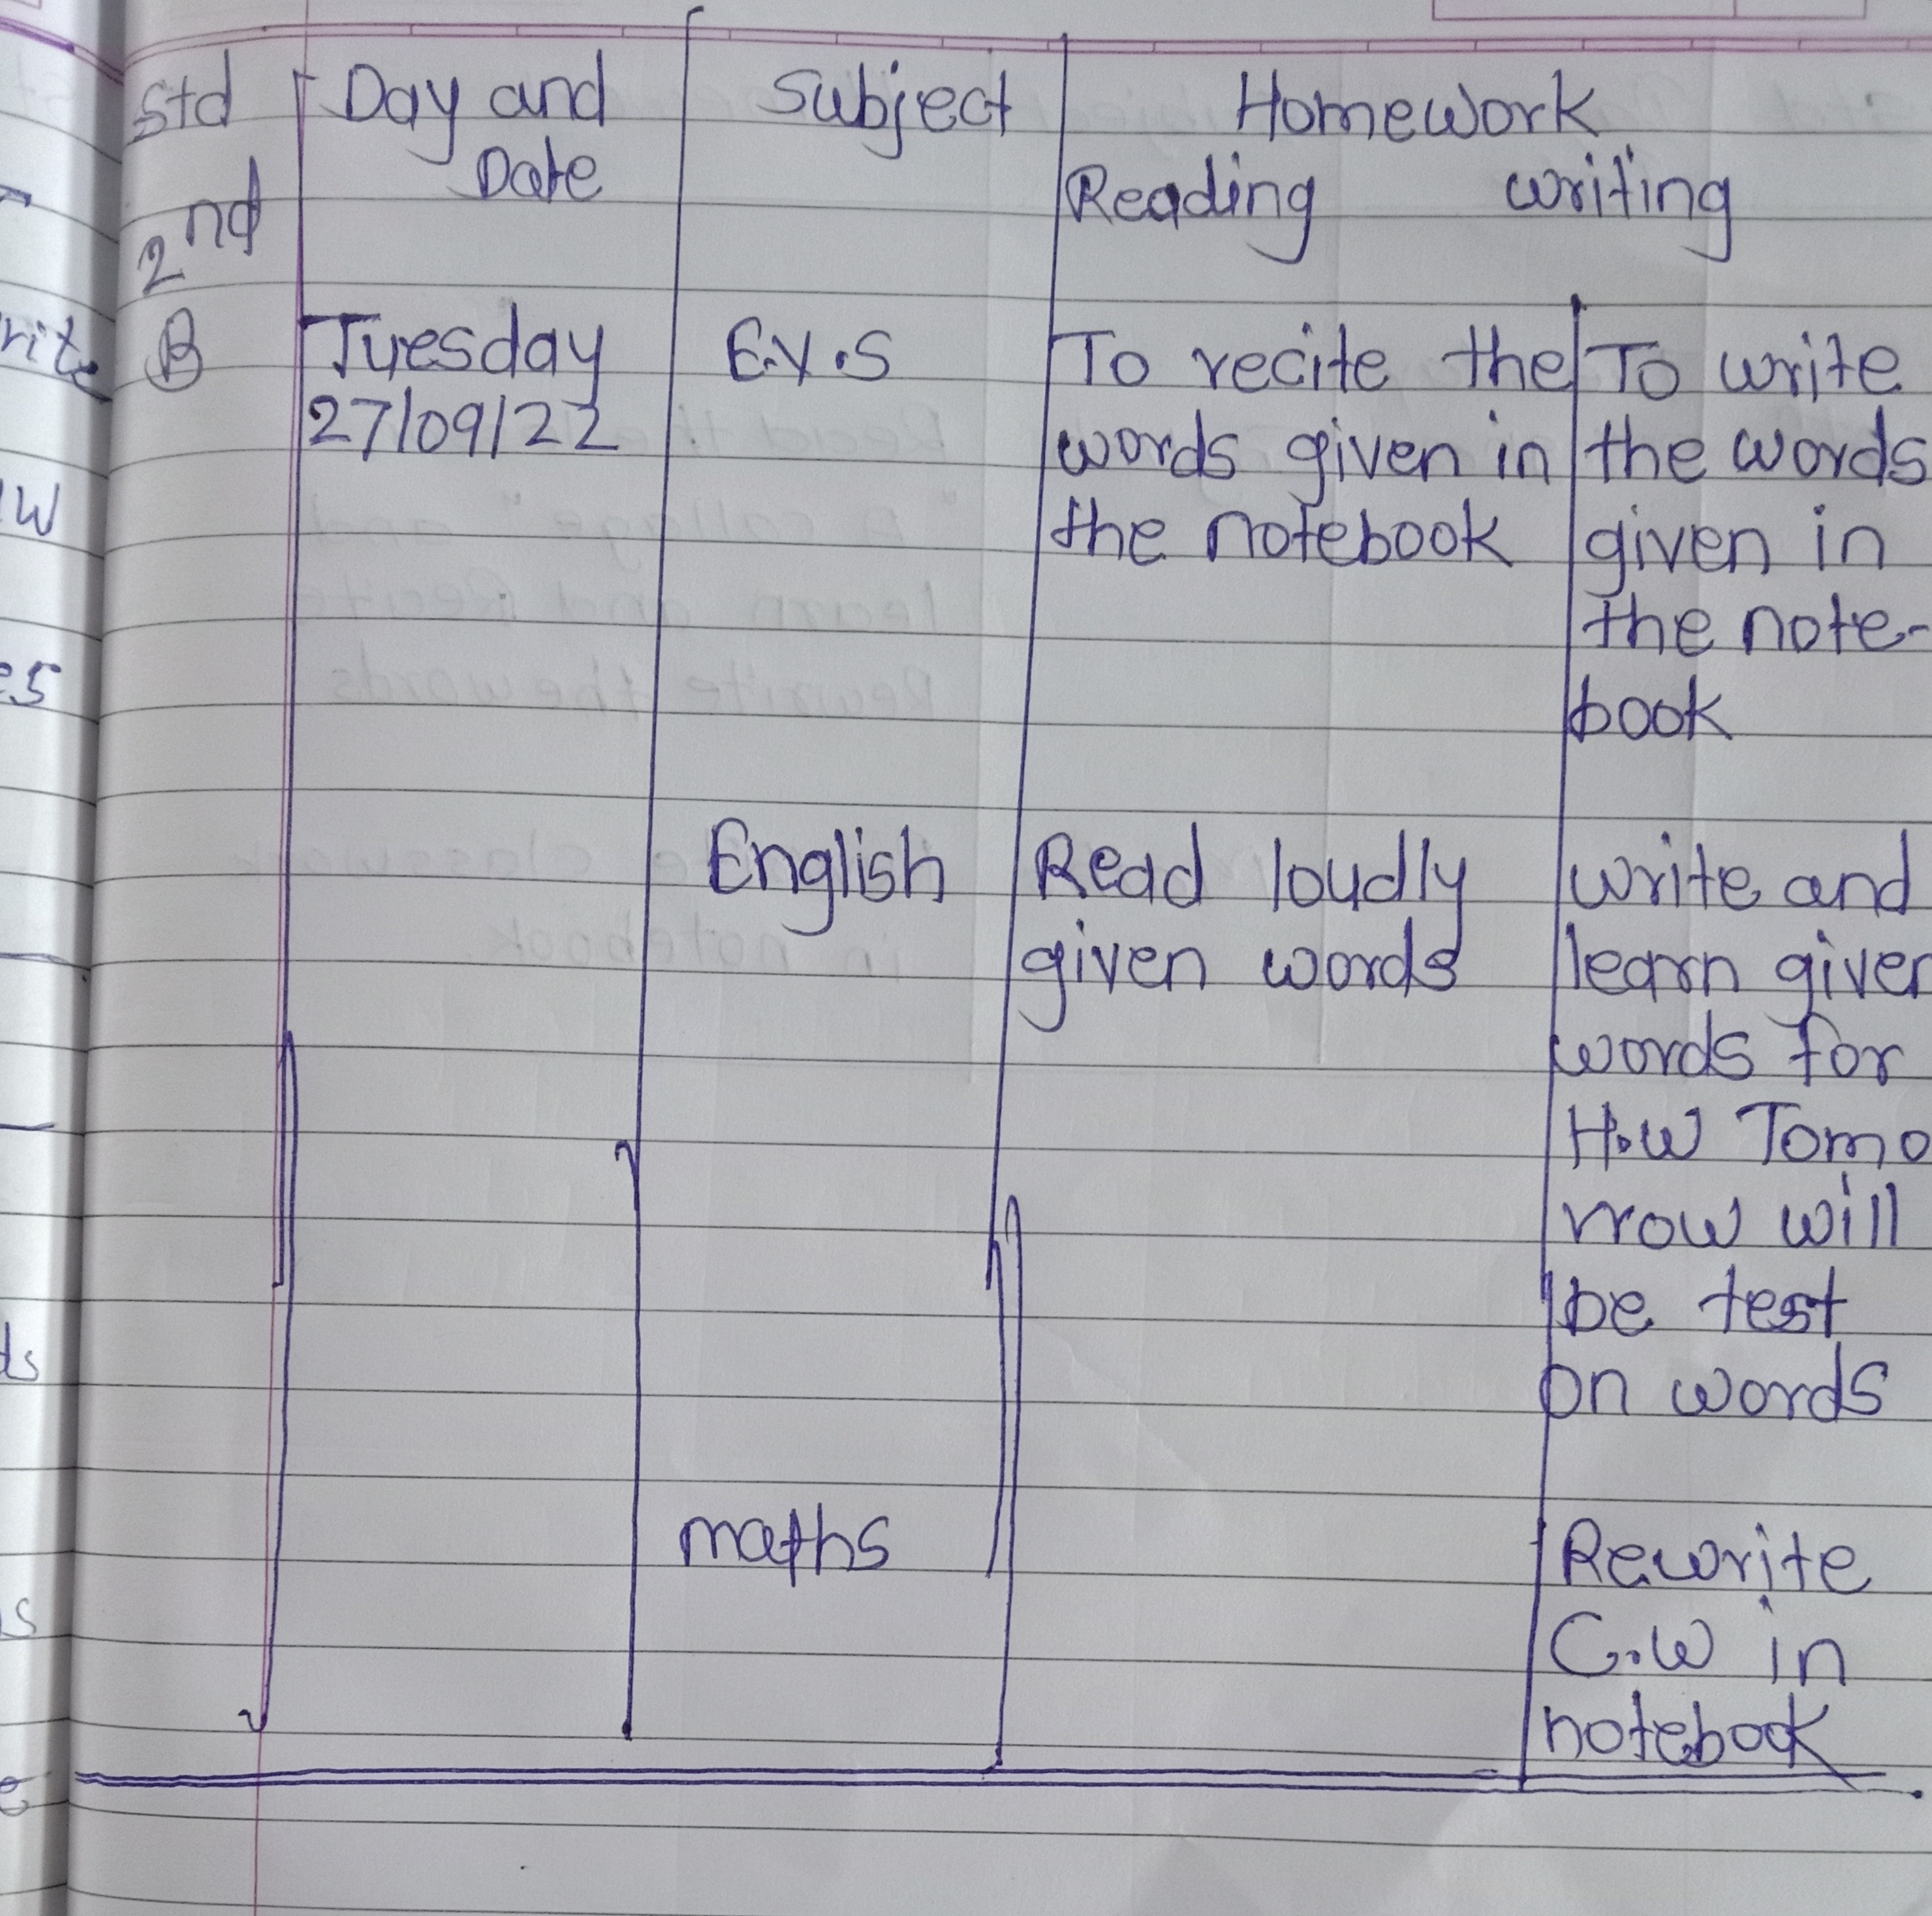 Std Day and Subject Homework
Date
2nd Reading writing
B Tuesday E.V.S To recite the To write
27/09/22 words given in the words
the notebook given in
the note-
book
English Read loudly write and
given words learn given
words for
H.W Tomo
rrow will
be test
on words
maths Rewrite
C.W in
notebook